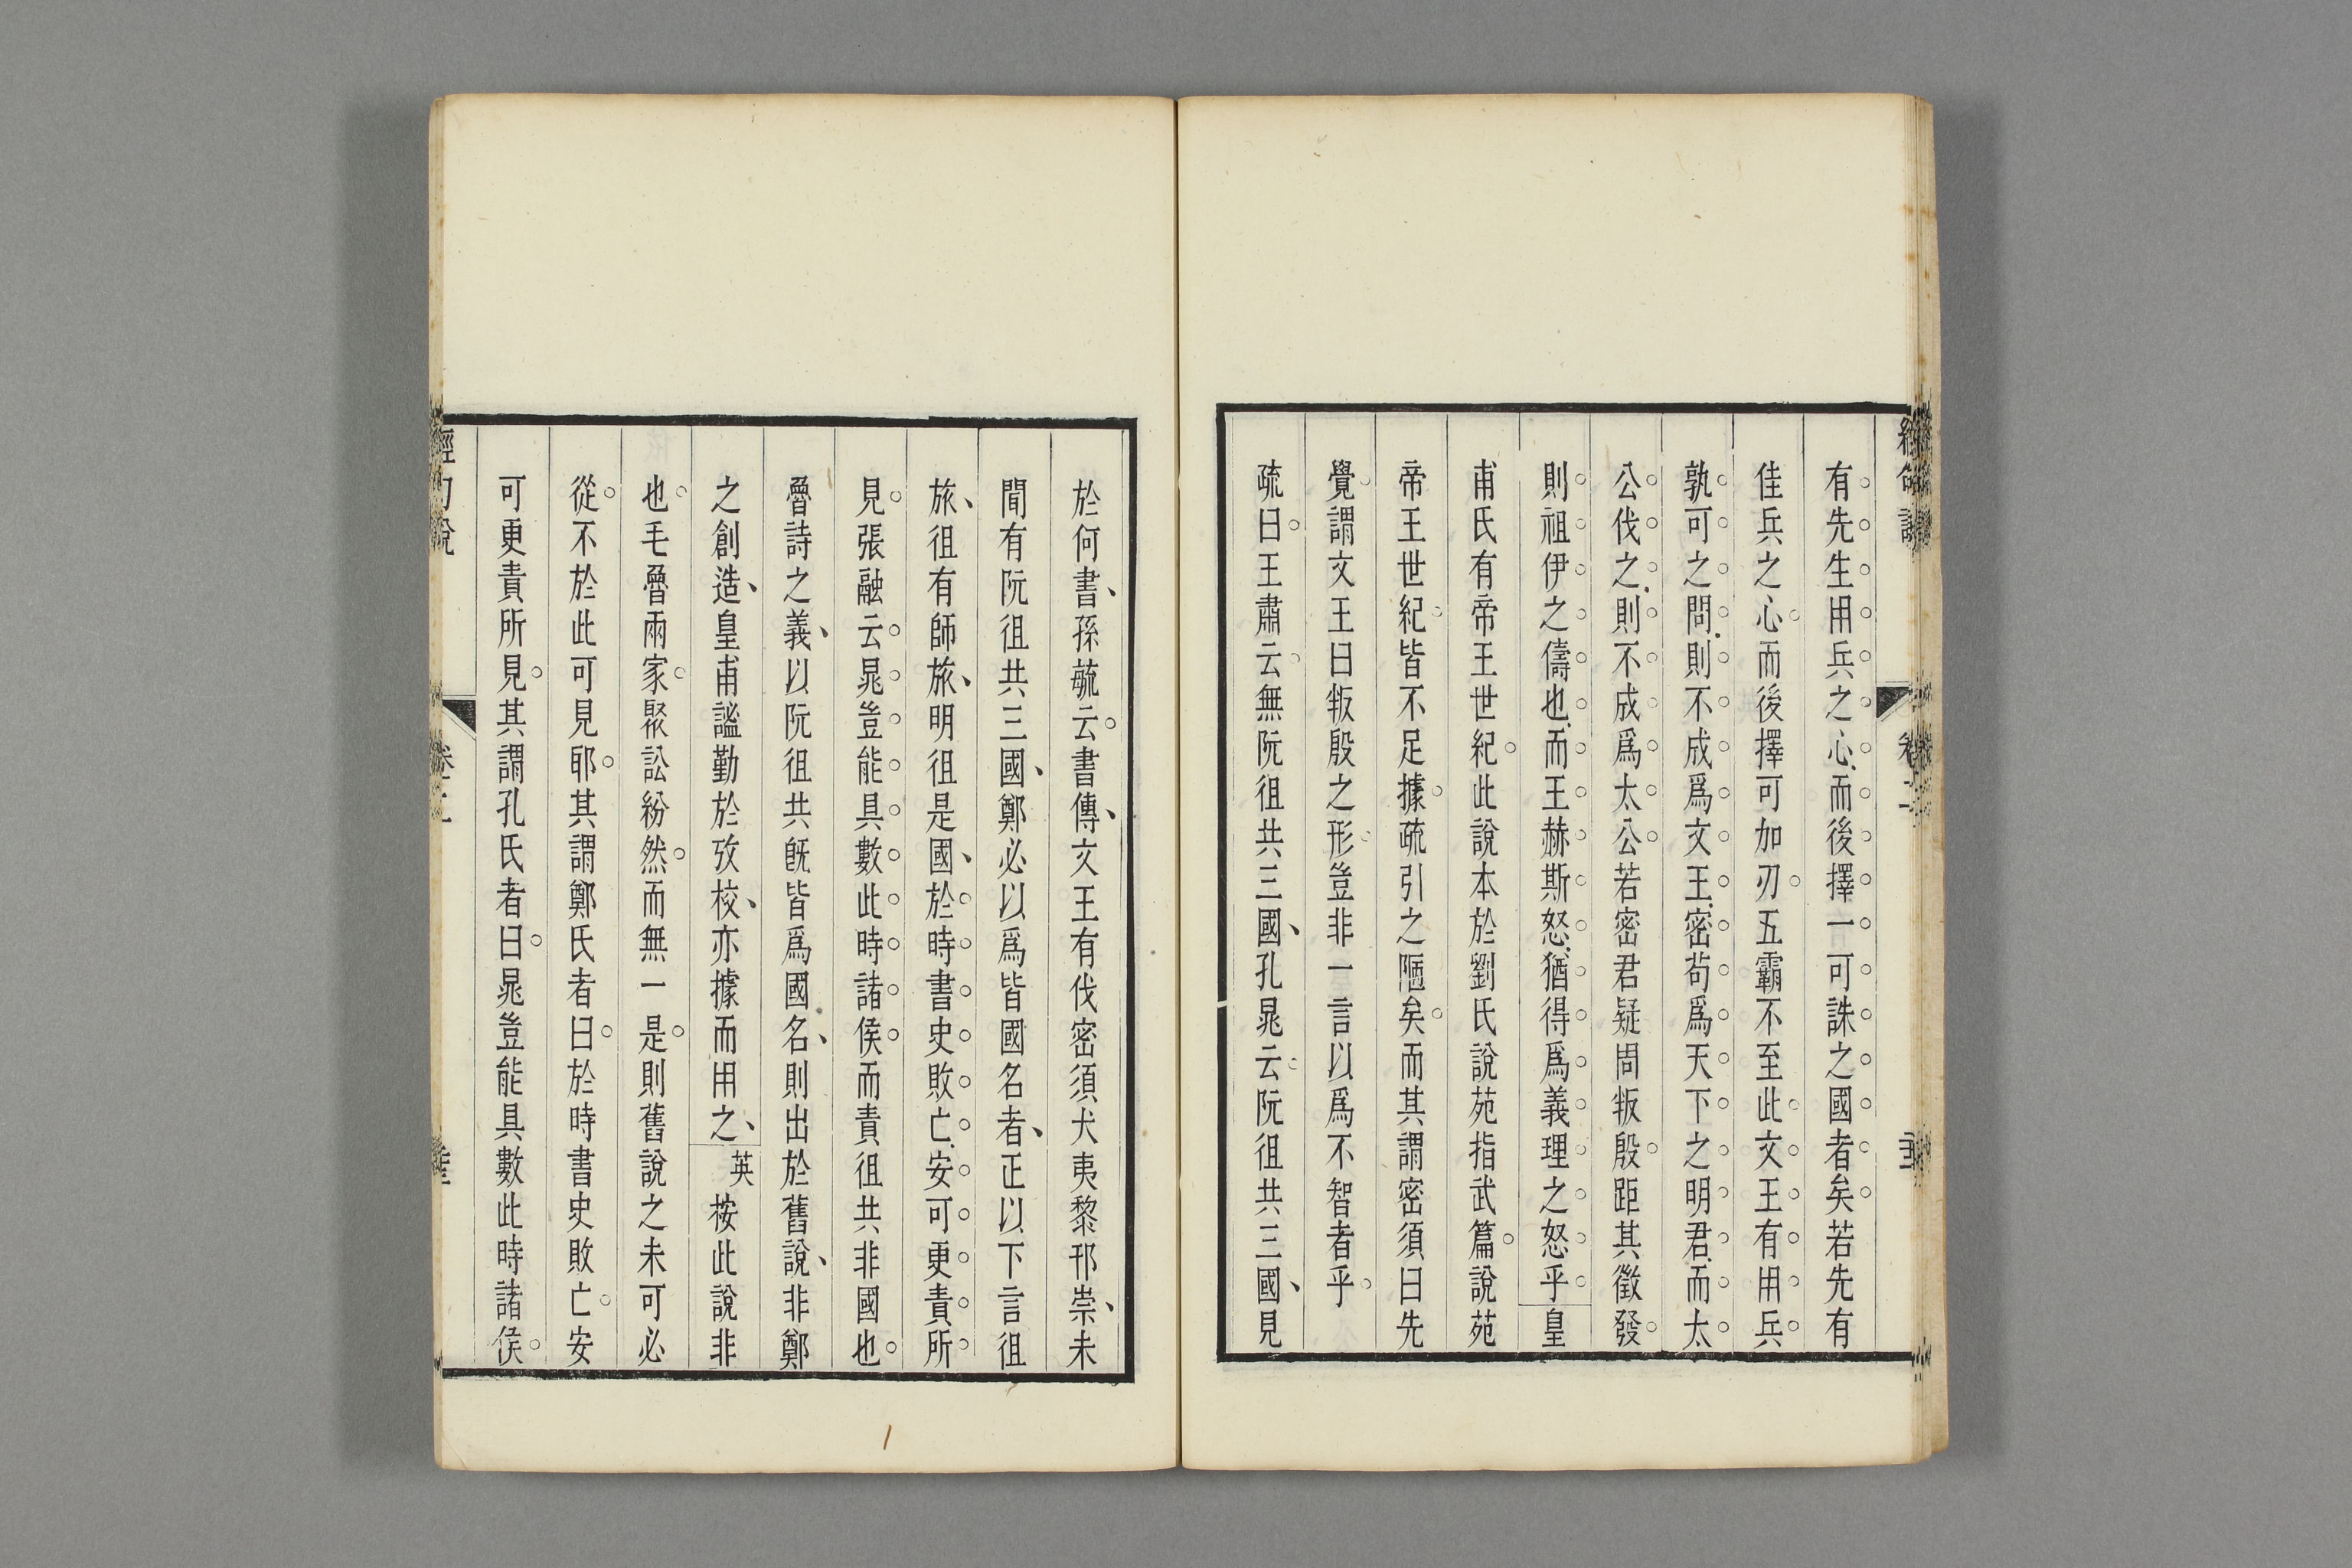 有先生用兵之心而後擇一可誅之國者矣若先有
佳兵之心而後擇可加刃五霸不至此文王有用兵
孰可之問則不成爲文王密茍爲天下之明君而太
公伐之則不成爲太公若密君疑周叛殷距其徵發
則祖伊之儔也而王赫斯怒猶得爲義理之怒乎皇
甫氏有帝王世紀此說本於劉氏說苑指武篇說苑
帝王世紀皆不足據疏引之陋矣而其謂密須曰先
覺謂文王曰叛殷之形豈非一言以爲不智者乎
疏曰王肅云無阮徂共三國孔晁云阮徂共三國見
於何書孫毓云書傳文王有伐密須犬夷黎邘崇未
聞有阮徂共三國鄭必以爲皆國名者正以下言徂
旅徂有師旅明徂是國於時書史敗亡安可更責所
見張融云晁豈能具數此時諸侯而責徂共非國也
魯詩之義以阮徂共旣皆爲國名則出於舊說非鄭
之創造皇甫謐勤於攷校亦據而用之英按此說非
也毛魯兩家聚訟紛然而無一是則舊說之未可必
從不於此可見耶其謂鄭氏者曰於時書史敗亡安
可更責所見其謂孔氏者曰晁豈能具數此時諸侯
經句說